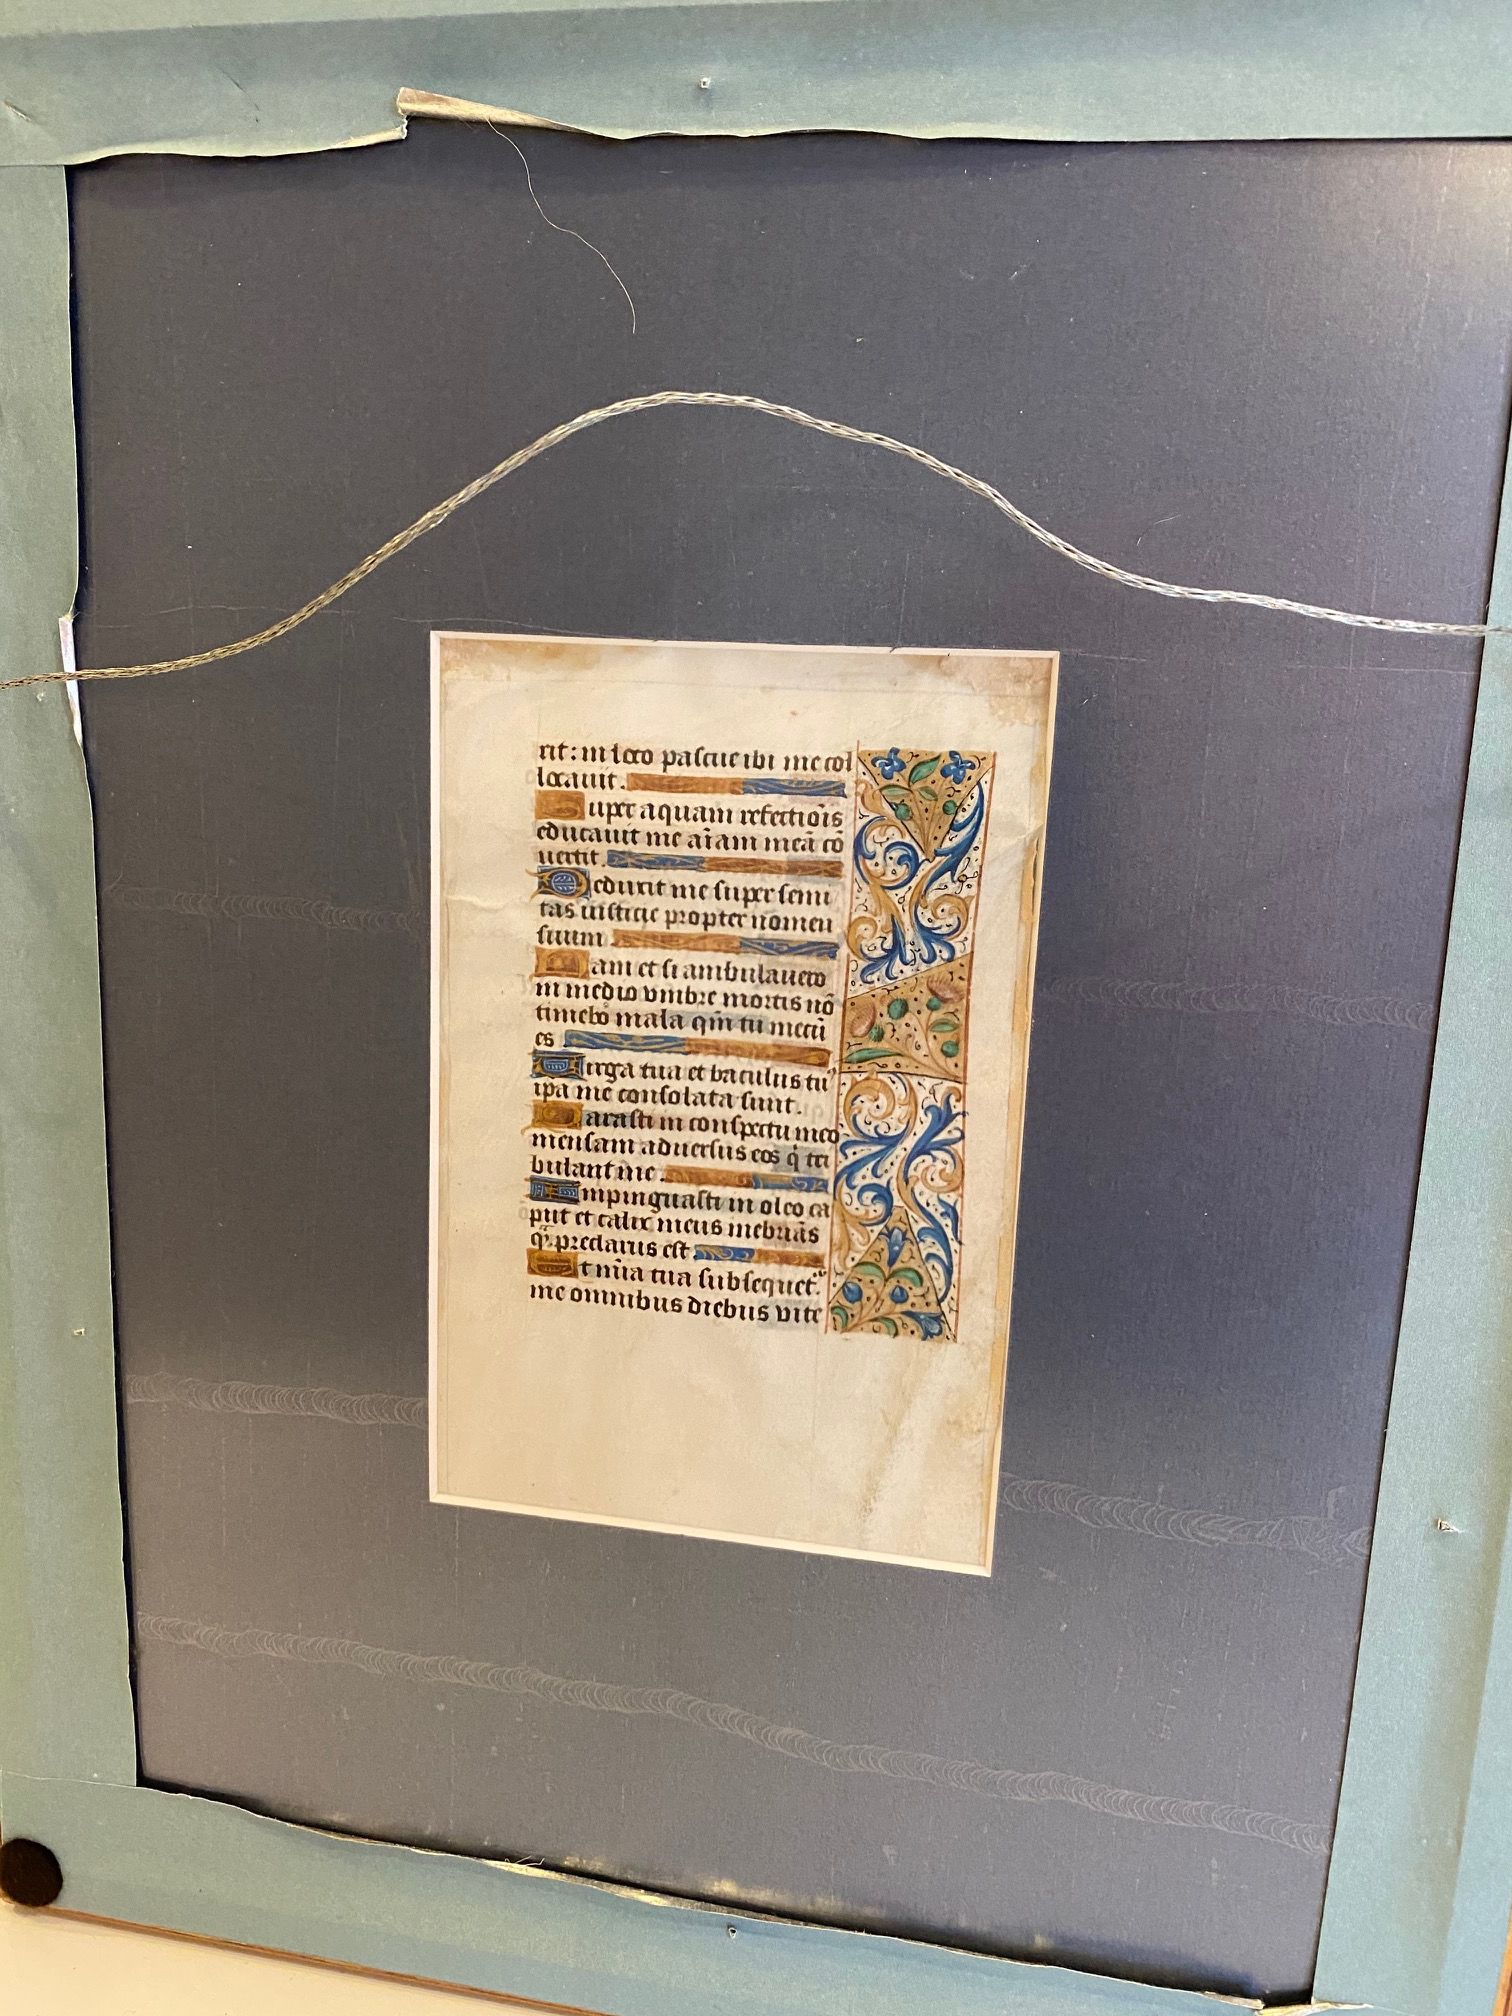 rit: in loco pascue ibi me col
locauit.
Super aquam refectiõis
educauit me aĩam meã cõ
uertit.
Deduxit me super semi
tas iusticie propter nomen
suum
Nam et si ambulauero
in medio vmbre mortis nõ
timebo mala qm̃ tu mecũ
es
Virga tua et baculus tuꝰ
ipa me consolata sunt.
Parasti in conspectu meo
mensam aduersus eos q̃ tri
bulant me.
Impinguasti in oleo ca
put et calix meus inebriãs
q̃ preclarus est
Et mĩa tua subsequet᷑
me omnibus diebus vite